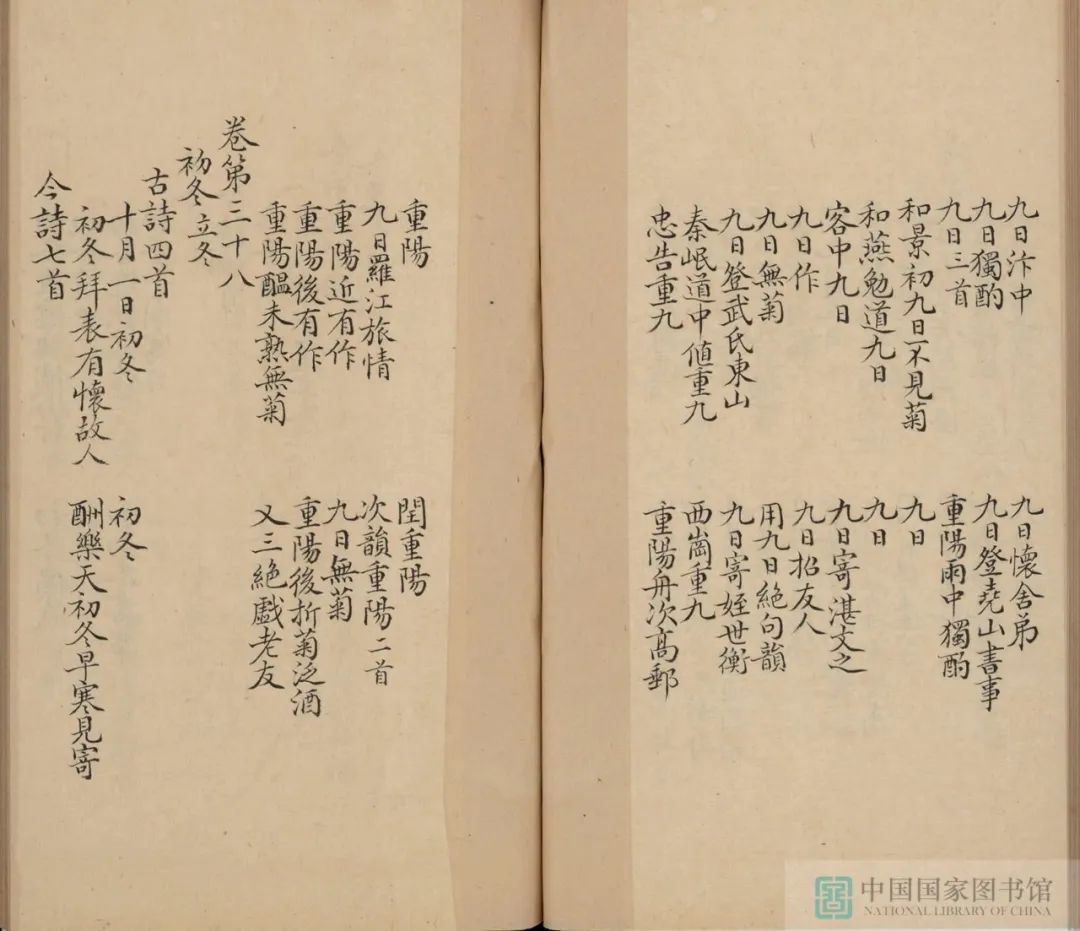 九日汴中 九日懷舍弟
九日獨酌 九日登堯山書事
九日三首 重陽雨中獨酌
和景初九日不見菊 九日
和燕勉道九日 九日
容中九日 九日寄湛文之
九日作 九日招友人
九日無菊 用九日絕句韻
九日登武氏東山 九日寄姪世衡
秦岷道中值重九 西崗重九
忠告重九 重陽舟次高郵
重陽 閏重陽
九日羅江旅情 次韻重陽二首
重陽近有作 九日無菊
重陽後有作 重陽後折菊泛酒
重陽醖未熟無菊 又三絕戲老友
卷第三十八
初冬立冬
古詩四首
十月一日初冬 初冬
初冬拜表有懷故人 酬樂天初冬早寒見寄
今詩七首
中国国家图书馆
NATIONAL LIBRARY OF CHINA